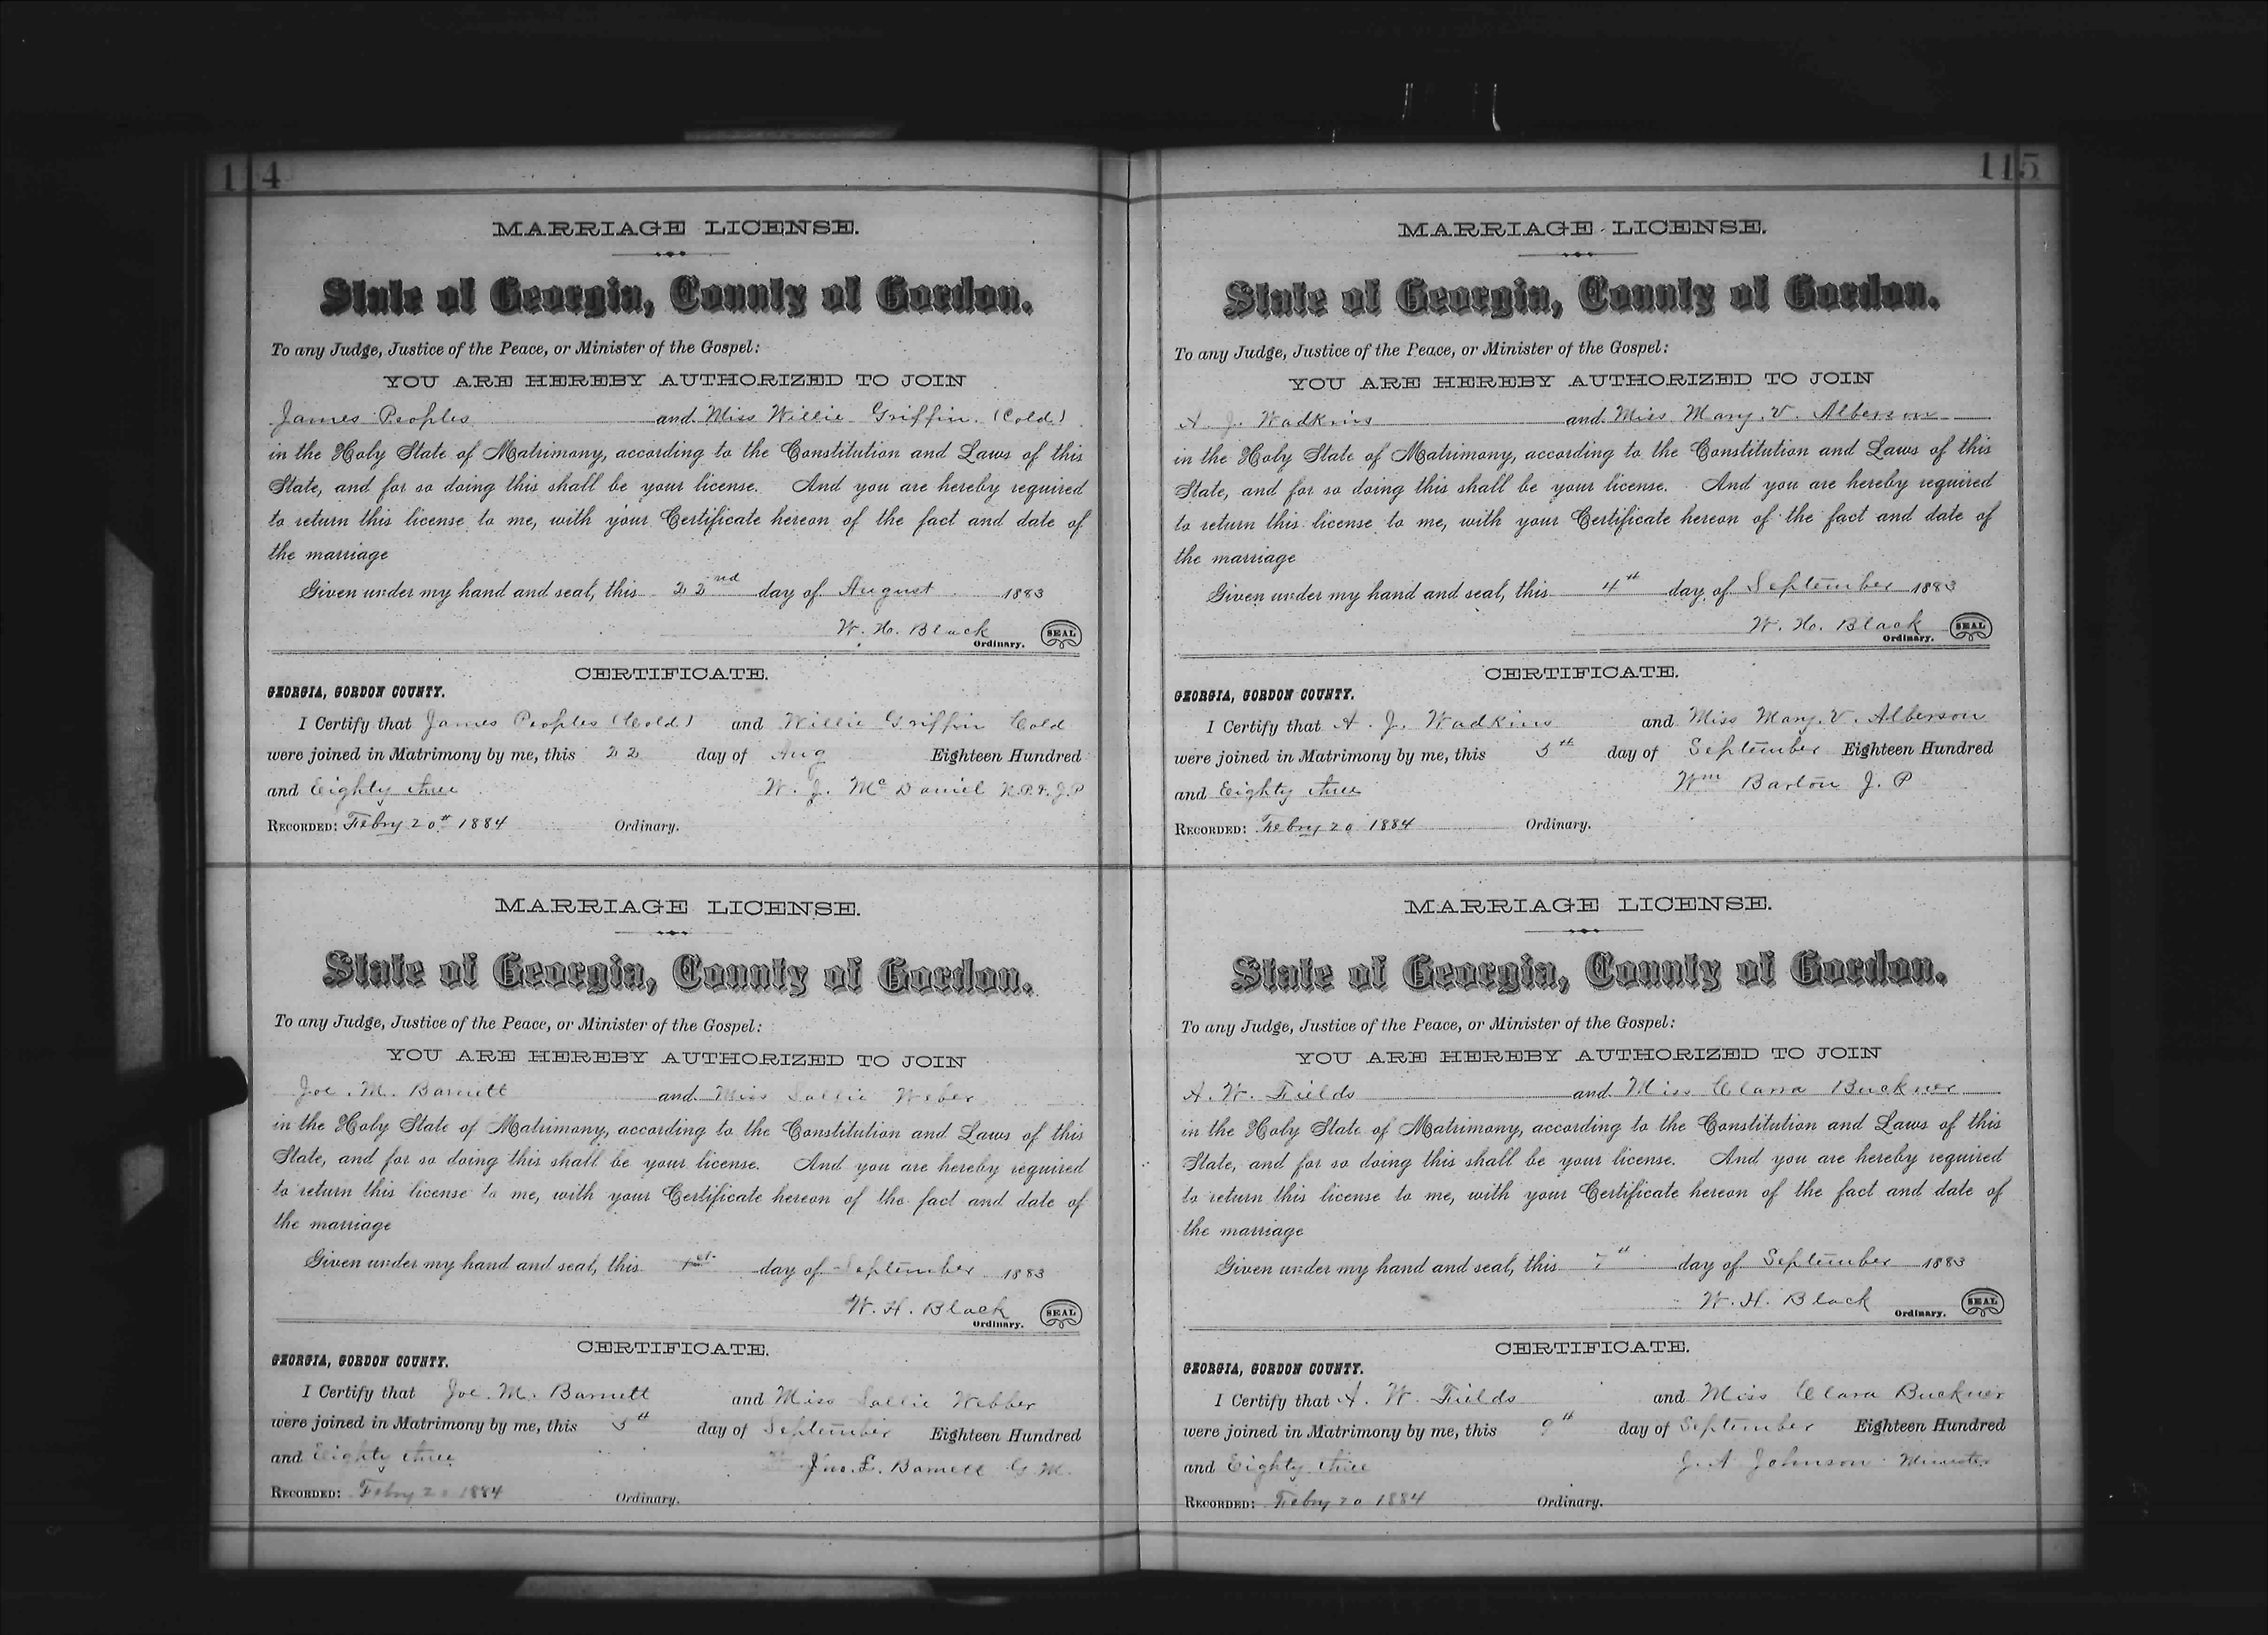 114
MARRIAGE LICENSE.
State of Georgia, County of Gordon.
To any Judge, Justice of the Peace, or Minister of the Gospel:
YOU ARE HEREBY AUTHORIZED TO JOIN
James Peoples and Miss Willie Griffin. (Cold)
in the Holy State of Matrimony, according to the Constitution and Laws of this
State, and for so doing this shall be your license. And you are hereby required
to return this license to me, with your Certificate hereon of the fact and date of
the marriage
Given under my hand and seal, this 22nd day of August 1883
W. H. Black SEAL
Ordinary.
CERTIFICATE.
GEORGIA, GORDON COUNTY.
I Certify that James Peoples (Cold) and Willie Griffin Cold
were joined in Matrimony by me, this 22 day of Aug Eighteen Hundred
and Eighty three W. J. McDaniel N.P.&.J.P
RECORDED: Febry 20th 1884 Ordinary.
MARRIAGE LICENSE.
State of Georgia, County of Gordon.
To any Judge, Justice of the Peace, or Minister of the Gospel:
YOU ARE HEREBY AUTHORIZED TO JOIN
Joe. M. Barnett and Miss Sallie Weber
in the Holy State of Matrimony, according to the Constitution and Laws of this
State, and for so doing this shall be your license. And you are hereby required
to return this license to me, with your Certificate hereon of the fact and date of
the marriage
Given under my hand and seal, this 1st day of September 1883
W. H. Black SEAL
Ordinary.
CERTIFICATE.
GEORGIA, GORDON COUNTY.
I Certify that Joe. M. Barnett and Miss Sallie Webber
were joined in Matrimony by me, this 5th day of September Eighteen Hundred
and Eighty three Jno. L. Barnett G. M.
RECORDED: Febry 20 1884 Ordinary.
115
MARRIAGE LICENSE.
State of Georgia, County of Gordon.
To any Judge, Justice of the Peace, or Minister of the Gospel:
YOU ARE HEREBY AUTHORIZED TO JOIN
A. J. Wadkins and Miss Mary. V. Alberson
in the Holy State of Matrimony, according to the Constitution and Laws of this
State, and for so doing this shall be your license. And you are hereby required
to return this license to me, with your Certificate hereon of the fact and date of
the marriage
Given under my hand and seal, this 4th day of September 1883
W. H. Black SEAL
Ordinary.
CERTIFICATE.
GEORGIA, GORDON COUNTY.
I Certify that A. J. Wadkins and Miss Mary. V. Alberson
were joined in Matrimony by me, this 5th day of September Eighteen Hundred
and Eighty three Wm Barton J. P
RECORDED: Febry 20 1884 Ordinary.
MARRIAGE LICENSE.
State of Georgia, County of Gordon.
To any Judge, Justice of the Peace, or Minister of the Gospel:
YOU ARE HEREBY AUTHORIZED TO JOIN
A. W. Fields and Miss Clara Buckner
in the Holy State of Matrimony, according to the Constitution and Laws of this
State, and for so doing this shall be your license. And you are hereby required
to return this license to me, with your Certificate hereon of the fact and date of
the marriage
Given under my hand and seal, this 7th day of September 1883
W. H. Black SEAL
Ordinary.
CERTIFICATE.
GEORGIA, GORDON COUNTY.
I Certify that A. W. Fields and Miss Clara Buckner
were joined in Matrimony by me, this 9th day of September Eighteen Hundred
and Eighty three J. A Johnson Minister
RECORDED: Febry 20 1884 Ordinary.